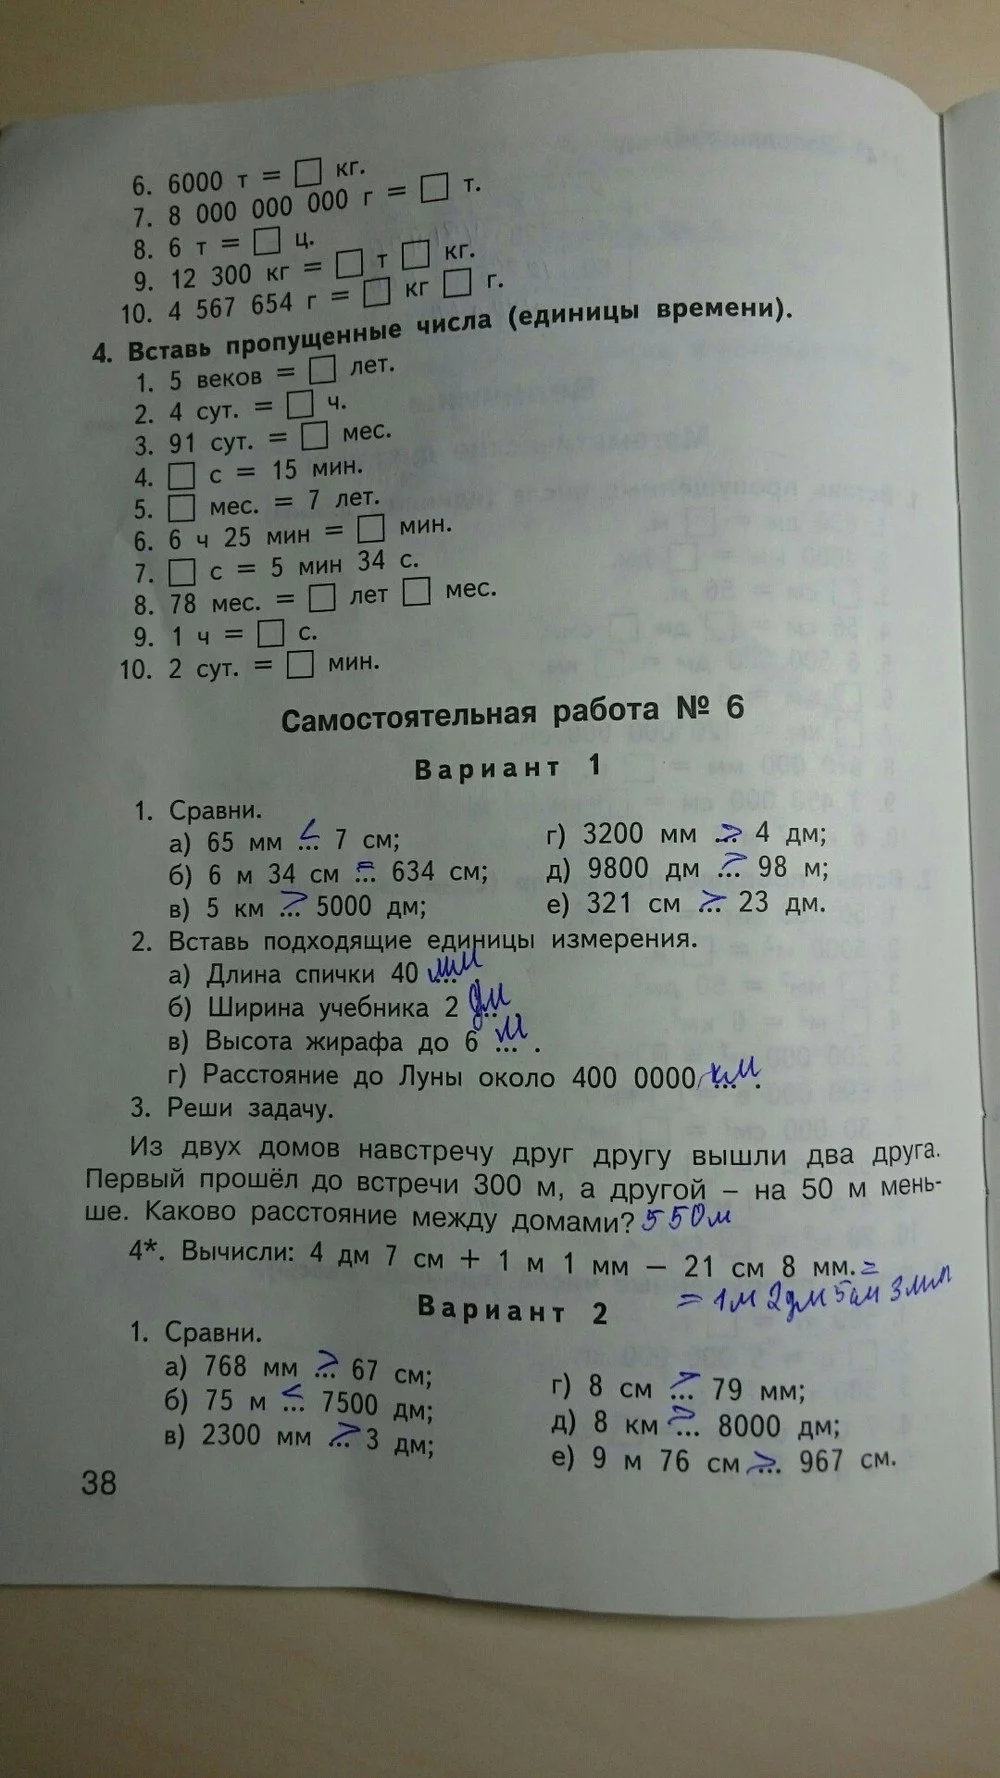 6. 6000 т = □ кг.
7. 8 000 000 000 г = □ т.
8. 6 т = □ ц.
9. 12 300 кг = □ т □ кг.
10. 4 567 654 г = □ кг □ г.
4. Вставь пропущенные числа (единицы времени).
1. 5 веков = □ лет.
2. 4 сут. = □ ч.
3. 91 сут. = □ мес.
4. □ с = 15 мин.
5. □ мес. = 7 лет.
6. 6 ч 25 мин = □ мин.
7. □ с = 5 мин 34 с.
8. 78 мес. = □ лет □ мес.
9. 1 ч = □ с.
10. 2 сут. = □ мин.
Самостоятельная работа № 6
Вариант 1
1. Сравни.
а) 65 мм <... 7 см; г) 3200 мм >... 4 дм;
б) 6 м 34 см =... 634 см; д) 9800 дм >... 98 м;
в) 5 км >... 5000 дм; е) 321 см >... 23 дм.
2. Вставь подходящие единицы измерения.
а) Длина спички 40 мм ... .
б) Ширина учебника 2 дм ...
в) Высота жирафа до 6 м ... .
г) Расстояние до Луны около 400 0000 км ... .
3. Реши задачу.
Из двух домов навстречу друг другу вышли два друга.
Первый прошёл до встречи 300 м, а другой – на 50 м мень-
ше. Каково расстояние между домами? 550м
4*. Вычисли: 4 дм 7 см + 1 м 1 мм — 21 см 8 мм. =
= 1м 2дм 5см 3мм
Вариант 2
1. Сравни.
а) 768 мм >... 67 см; г) 8 см >... 79 мм;
б) 75 м <... 7500 дм; д) 8 км >... 8000 дм;
в) 2300 мм >... 3 дм; е) 9 м 76 см >... 967 см.
38